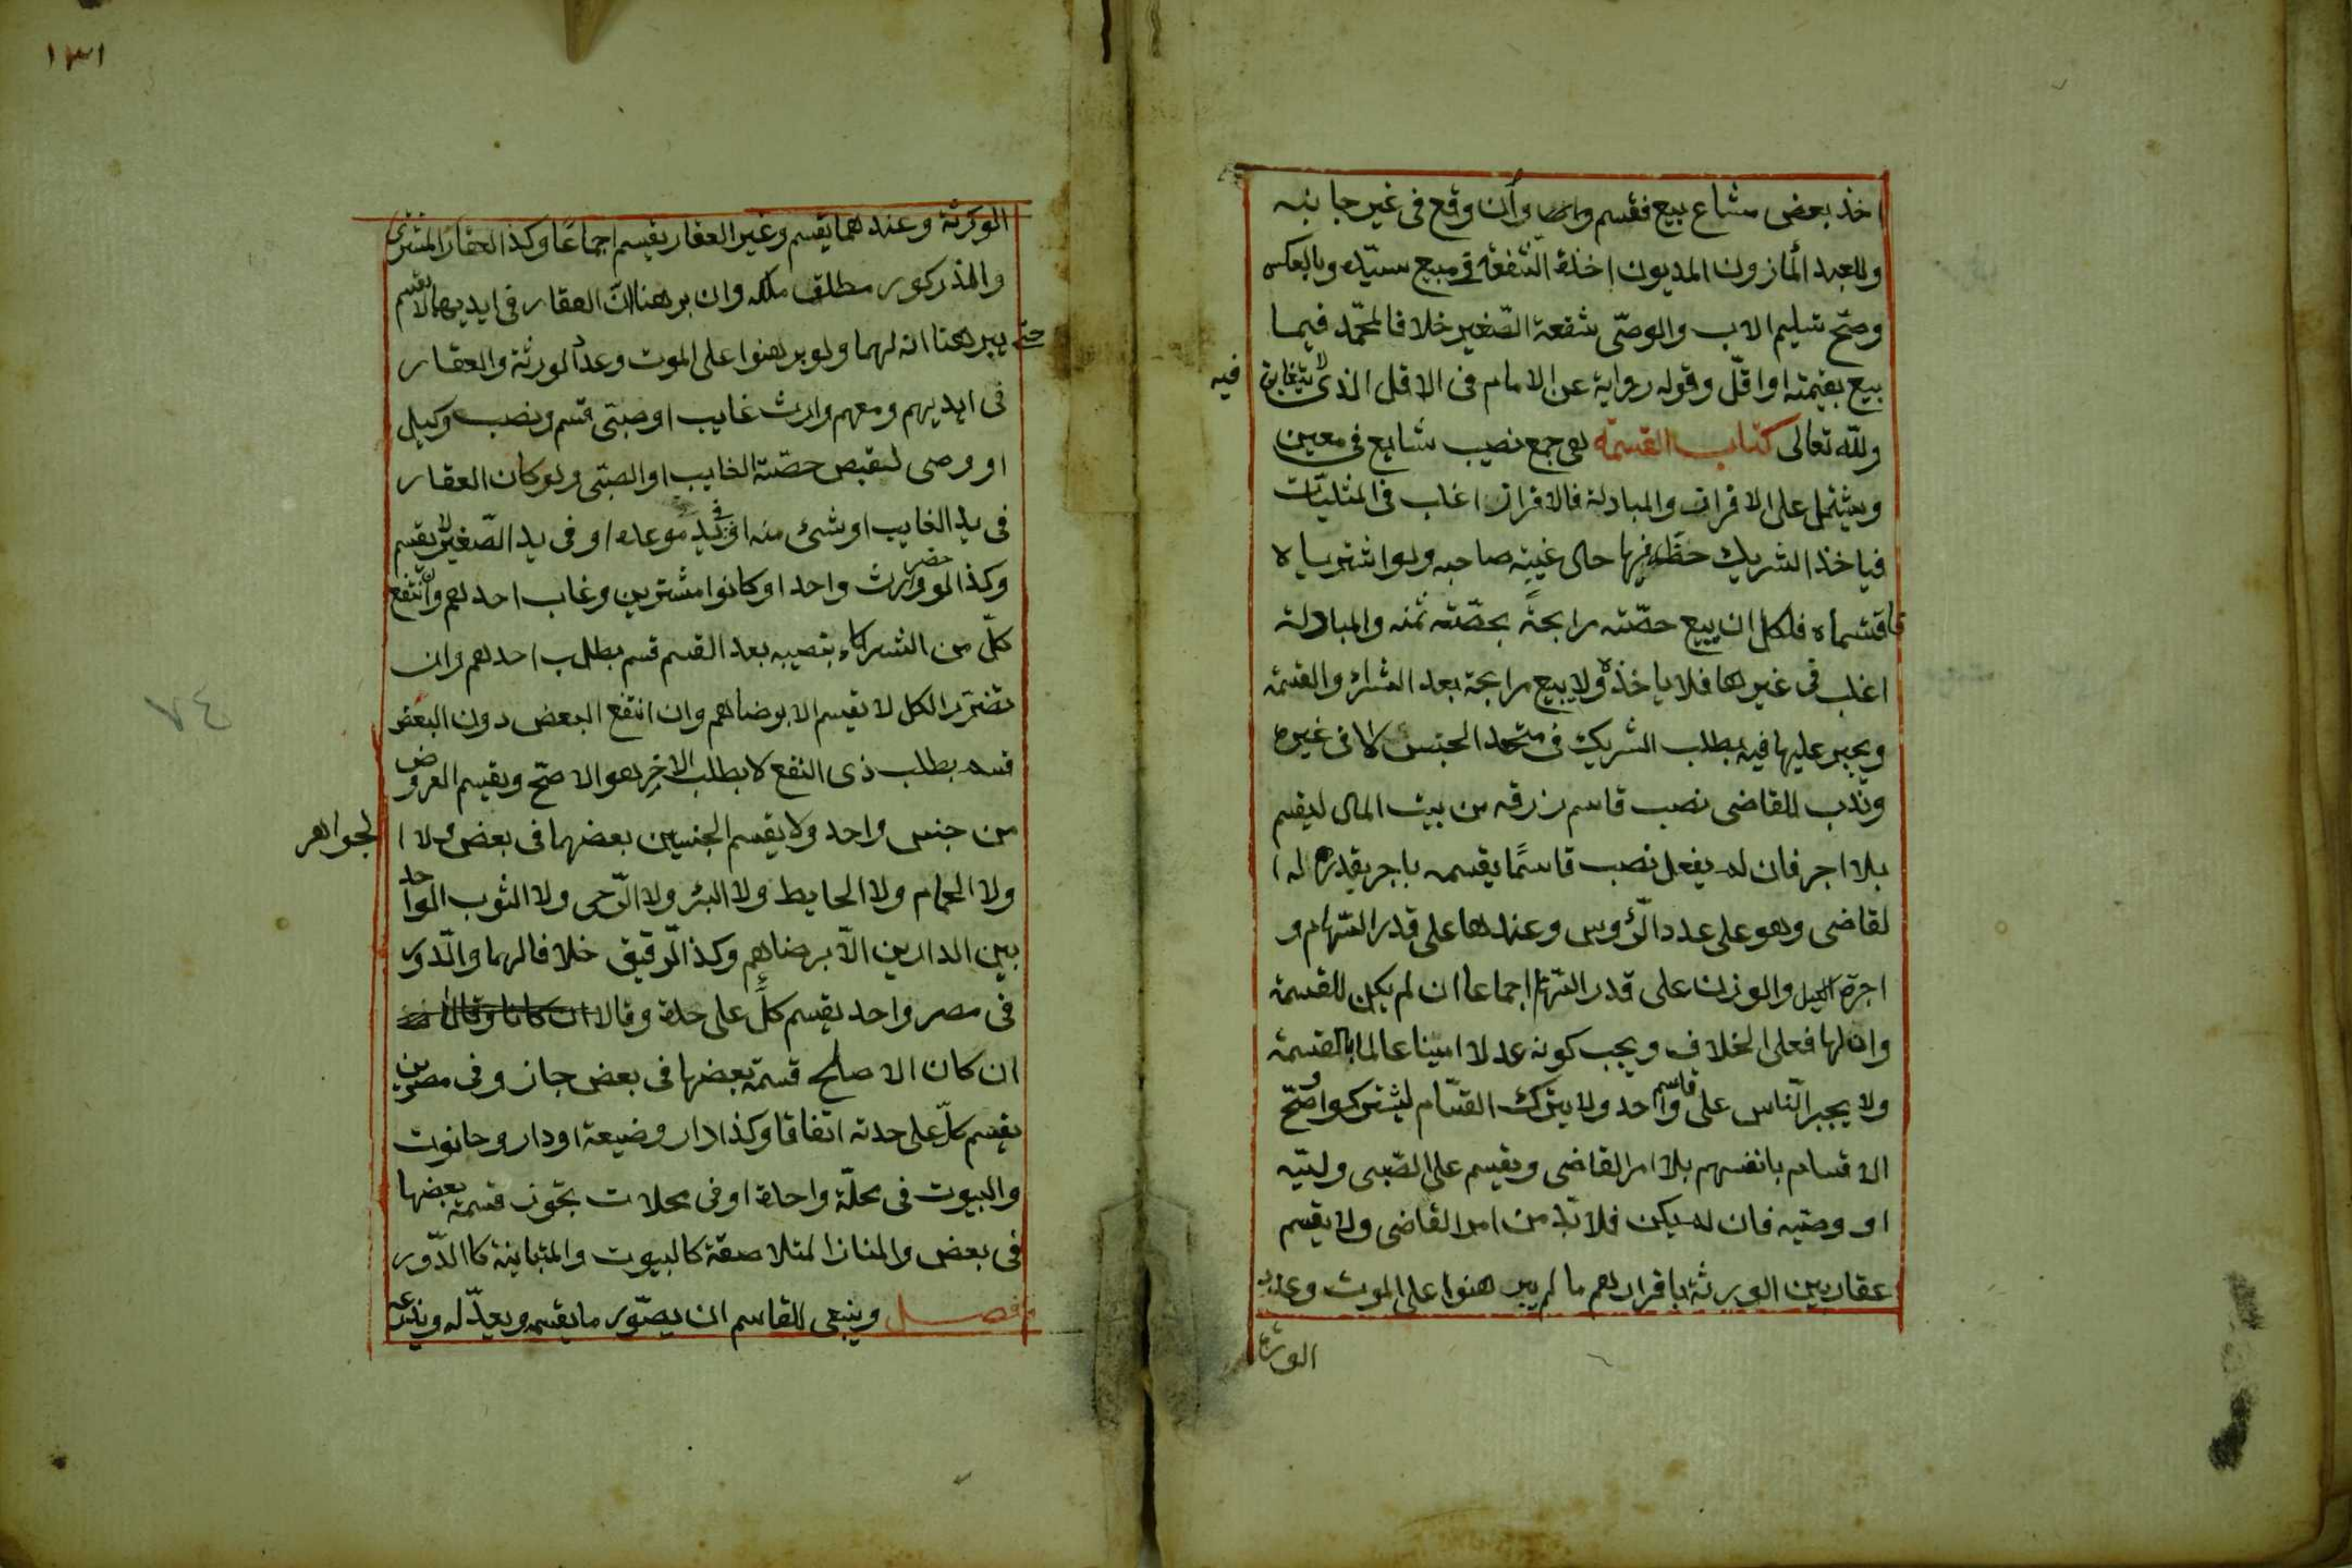 اخذ بعض مشاع بيع فقسم وان وقع فى غير جانبه
وللعبد المأزون المديون اخذه الشفعة فى مبيع سيّده وبالعكس
وصحّ تسليم الاب والوصّى شفعة الصّغير خلافا لمحمّد فيما
بيع بقيمته او اقلّ وقوله رواية عن الامام فى الاقل الذى لا يتغابن فيه
ولله تعالى كتاب القسمة هى جمع نصيب شايع فى معين
ويشتمل على الافراز والمبادلة فالافراز اغلب فى المثليّات
فياخذ الشريك حظّه فيها حال غيبة صاحبه ولو اشترياه
فاقتسماه فلكل ان يبيع حصّته مرابحةً بحصّته ثمنه والمبادلة
اغلب فى غيرها فلا ياخذه ولا يبيع مرابحة بعد الشراء والقسمة
ويجبر عليها فيه بطلب الشريك فى متحد الجنس لا فى غيره
وندب للقاضى نصب قاسم رزقه من بيت المال ليقسم
بلا اجر فان لم يفعل نصب قاسمًا يقسم باجر يقدره له ا
لقاضى وهو على عدد الرّؤس وعندهما على قدر السّهام و
اجرة الكيل والوزن على قدر السّهام اجماعا ان لم يكن للقسمة
وان لها فعلى الخلاف ويجب كونه عدلا امينا عالما بالقسمة
ولا يجبر النّاس على قاسم واحد ولا يترك القسّام ليشتركوا وصّح
الاقتسام بانفسهم بلا امر القاضى ويقسم على الصّبى وليّه
او وصّيه فان لم يكن فلا بدّ من امر القاضى ولا يقسم
عقار بين الورثة باقرارهم ما لم يبرهنوا على الموت وعدد
الورثة
١٣١
الورثة وعندهما يقسم وغير العقار يقسم اجماعًا وكذا العقار المشترى
والمذكور مطلق ملكه وان برهنا انّ العقار فى ايديهما لا يقسم
حتى يبرهنا انه لهما ولو برهنوا على الموت وعدد الورثة والعقار
فى ايديهم ومعهم وارث غايب او صبّى قسم ونصب وكيل
او وصى لقبض حصّة الغايب او الصبّى ولو كان العقار
فى يد الغايب او شئ منه او فى يد مودعه او فى يد الصّغير لا يقسم
وكذا لو حضر وارث واحد او كانوا مشترين وغاب احدهم وان انتفع
كلّ من الشركاء بنصيبه بعد القسم قسم بطلب احدهم وان
تضّرر الكل لا يقسم الا برضاهم وان انتفع البعض دون البعض
قسم بطلب ذى النفع لا بطلب الاخر هو الاصّح ويقسم العروض
من جنس واحد ولا يقسم الجنسين بعضهما فى بعض ولا ا لجواهر
ولا الحمام ولا الحايط ولا البئر ولا الرّحى ولا الثوب الواحد
بين الدارين الاّ برضاهم وكذا الرّقيق خلافا لهما والدّور
فى مصر واحد يقسم كلٍّ على حدة وقالا ان كانا وقالا
ان كان الاصلح قسمة بعضها فى بعض جاز وفى مصرين
يقسم كلّ على حدته اتفاقا وكذا دار وضيعة او دار وحانوت
والبيوت فى محلّة واحدة او فى محلات تجوز قسمة بعضها
فى بعض والمنازل المتلاصقة كالبيوت والمتباينة كالدّور
فصل وينبغى للقاسم ان يصّور ما يقسمه ويعدّله ويذرعه
٧٤